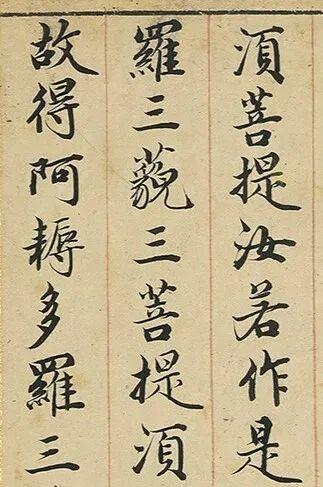 須菩提汝若作是
羅三藐三菩提須
故得阿耨多羅三